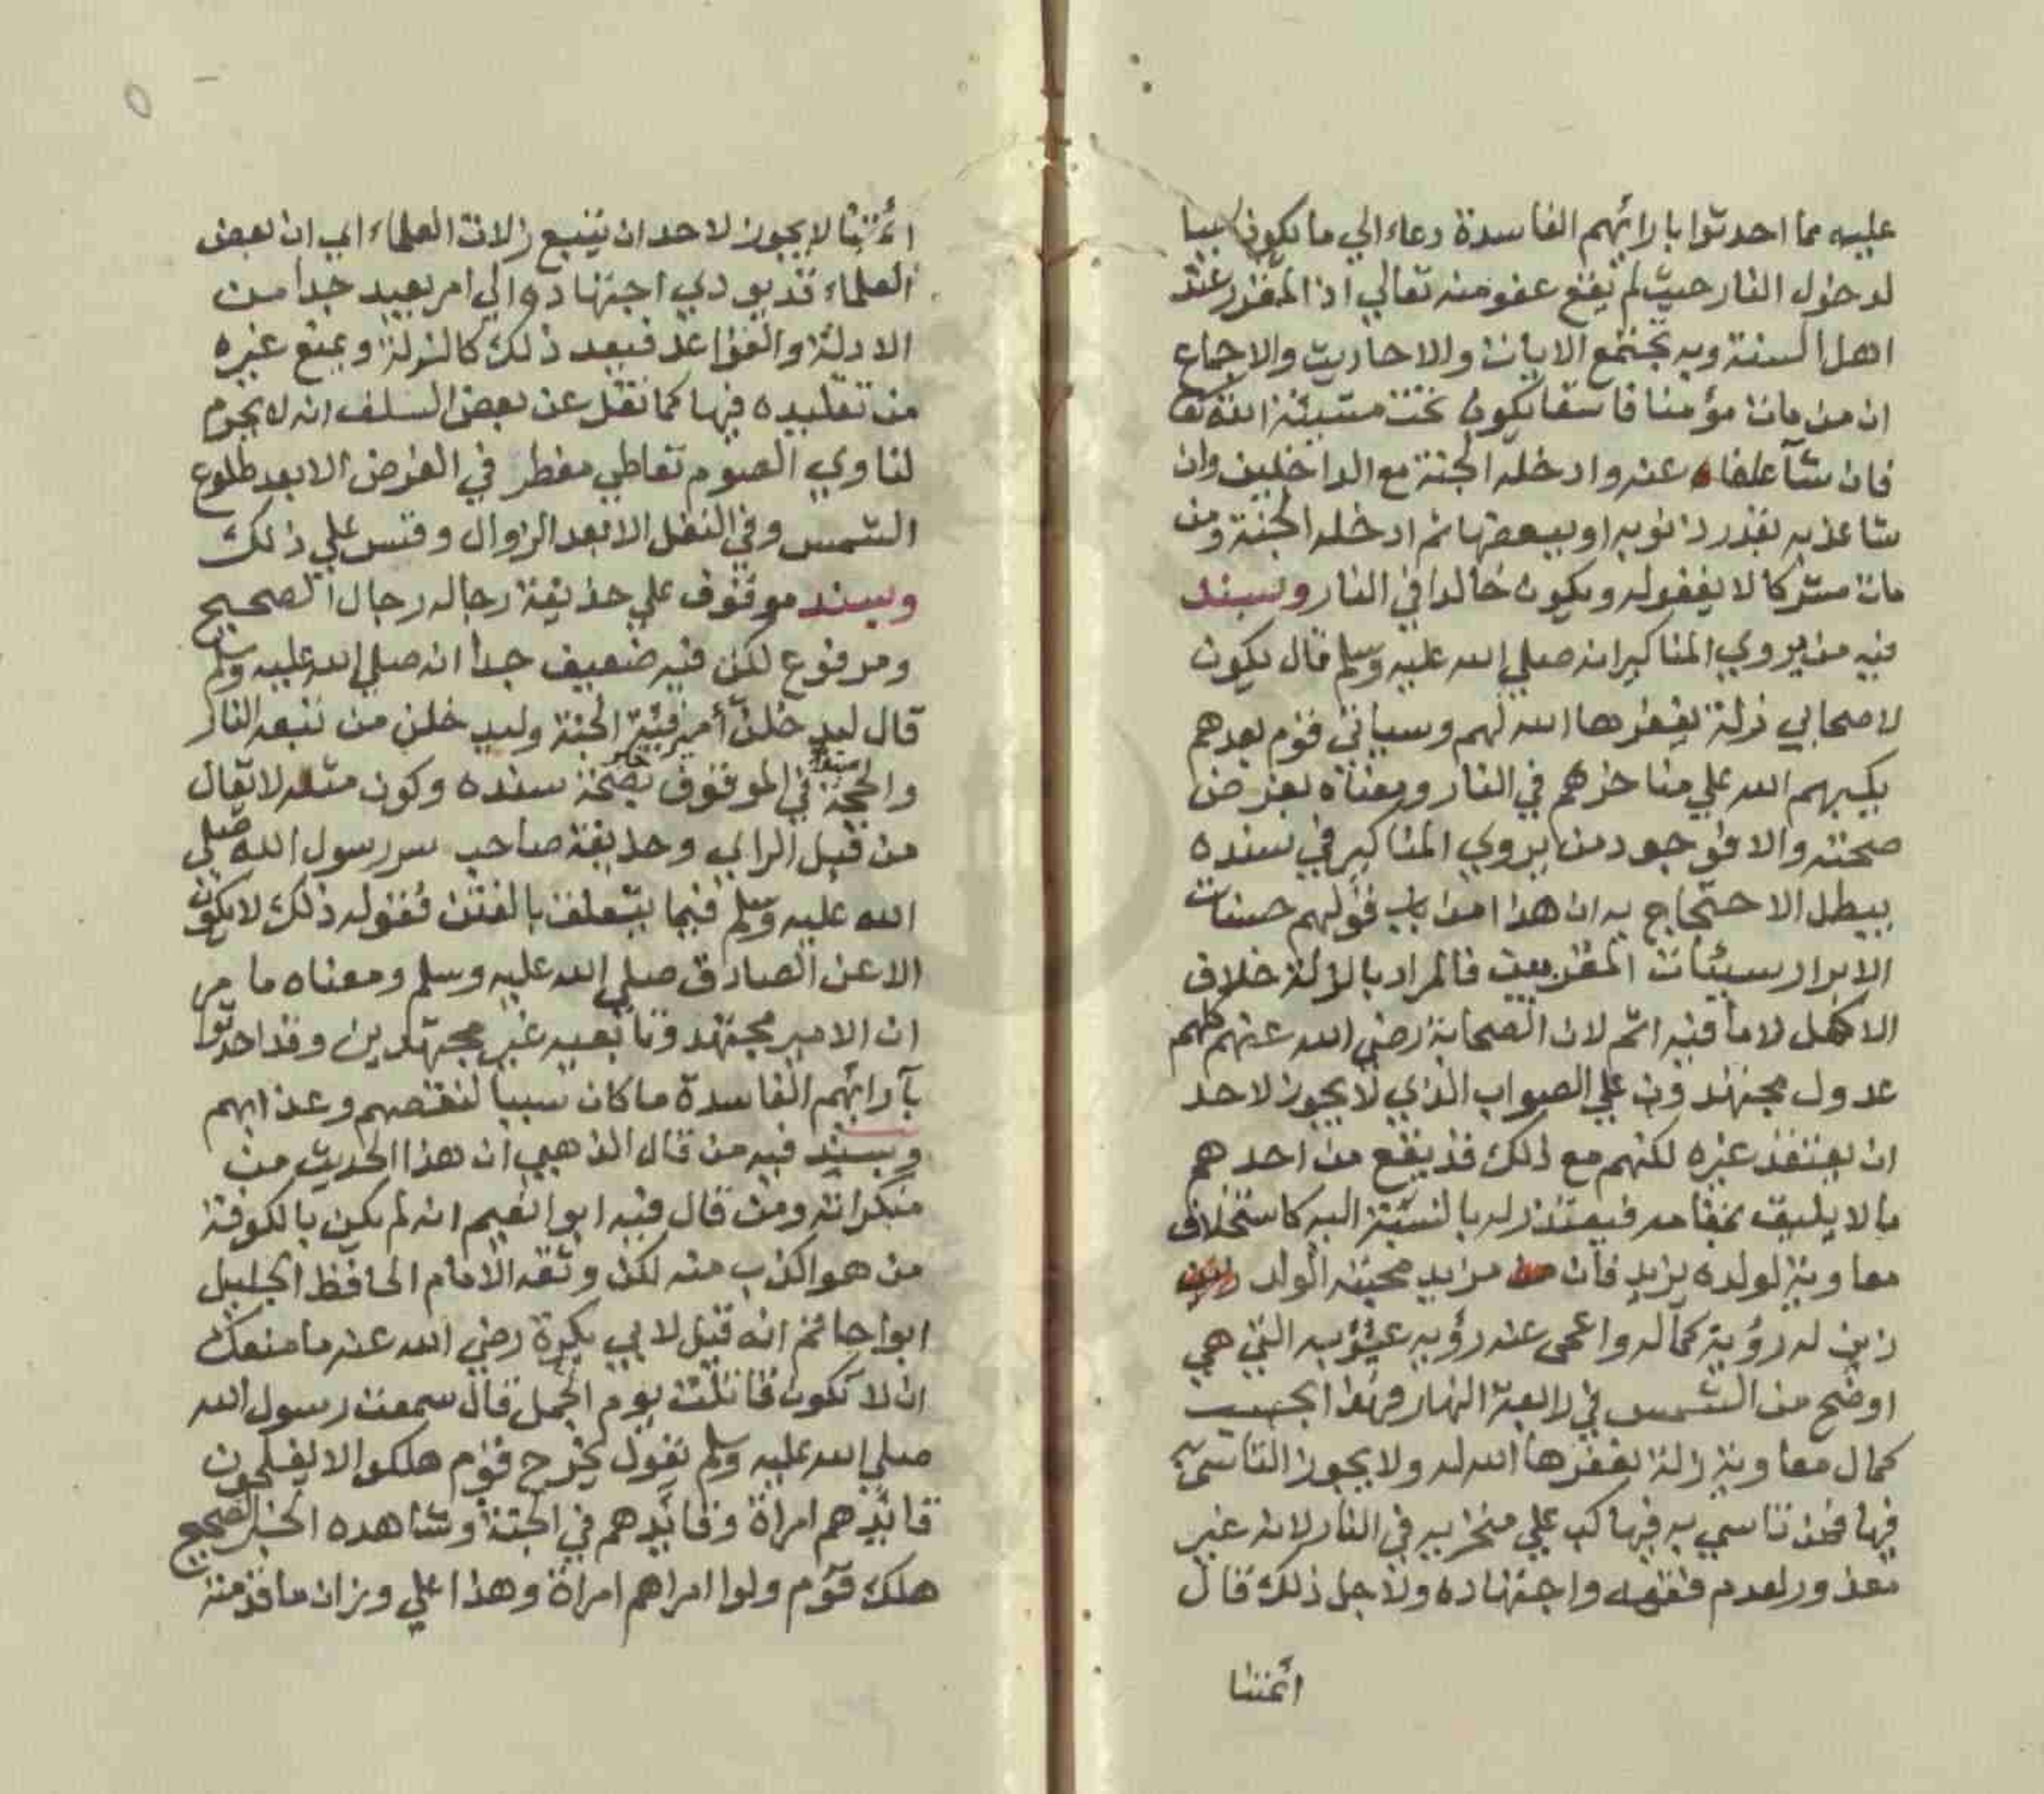 عليه مما احدثوا بارائهم الفاسدة دعاء الي ما يكون سببا
لدخول النار حيث لم يقع عفو منه تعالي اذ المقرر عند
اهل السنة وبه تجتمع الايات والاحاديث والاجماع
ان من مات مؤمنا فاسقا يكون تحت مشيئة الله تعا
فان شآ عفا عنه وادخله الجنة مع الداخلين وان
شا عذبه بقدر ذنوبه او ببعضها ثم ادخله الجنة ومن
مات مشركا لا يغفر له ويكون خالدا في النار وبسند
فيه من يروي المناكير انه صلي الله عليه وسلم قال يكون
لاصحابي زلة يغفرها الله لهم وسياتي قوم بعدهم
يكبهم الله علي مناخرهم في النار ومعناه بفرض
صحته والا فوجود من يروي المناكير في سنده
يبطل الاحتجاج به ان هذا من باب قولهم حسنات
الابرار سيئات المقربين فالمراد بالزلة خلاف
الاكمل لا ما فيه اثم لان الصحابة رضي الله عنهم كلهم
عدول مجتهدون علي الصواب الذي لا يجوز لاحد
ان يعتقد غيره لكنهم مع ذلك قد يقع من احدهم
ما لا يليق بمقامه فيعتذر له بالنسبة اليه كاستخلاف
معاوية لولده يزيد فان مزيد محبته الولد
زين له رؤية كماله واعمى عنه رؤيه عيوبه التي هي
اوضح من الشمس في رابعة النهار فهذا بحسب
كمال معاوية زلة يغفرها الله له ولا يجوز التاسي به
فيها فمن تاسي به فيها كب علي منخريه في النار لانه غير
معذور لعدم فقهه واجتهاده ولاجل ذلك قال
ائمتنا
ائمتنا لا يجوز لاحد ان يتبع زلات العلماء اي ان بعض
العلماء قد يودي اجتهاده الي امر بعيد جدا من
الادلة والقواعد فيعد ذلك كالزلة ويمنع غيره
من تقليده فيها كما نقل عن بعض السلف انه لا يحرم
لناوي الصوم تعاطي مفطر في الفرض الا بعد طلوع
الشمس وفي النفل الا بعد الزوال وقس علي ذلك
وبسند موقوف علي حذيفة رجاله رجال الصحيح
ومرفوع لكن فيه ضعيف جدا انه صلي الله عليه وسلم
قال ليدخلن أمير فئة الجنة وليدخلن من تبعه النار
والحجة في الموقوف بصحة سنده وكون مثله لا يقال
من قبل الراي وحذيفة صاحب سر رسول الله صلي
الله عليه وسلم فيما يتعلق بالفتن فقوله ذلك لا يكون
الا عن الصادق صلي الله عليه وسلم ومعناه ما مر
ان الامير مجتهد وتابعيه غير مجتهدين وقد احدثوا
بآرائهم الفاسدة ما كان سببا لنقصهم وعذابهم
وبسند فيه من قال الذهبي ان هذا الحديث من
منكراته ومن قال فيه ابوا نعيم انه لم يكن بالكوفة
من هو اكذب منه لكن وثقه الامام الحافظ الجليل
ابوا حاتم انه قيل لابي بكرة رضي الله عنه ما منعك
ان لا تكون قاتلت يوم الجمل قال سمعت رسول الله
صلي الله عليه وسلم يقول يخرج قوم هلكوا لا يفلحون
قائدهم امراة وقائدهم في الجنة وشاهده الخبر الصحيح
هلك قوم ولوا امراهم امراة وهذا علي وزان ما قدمته